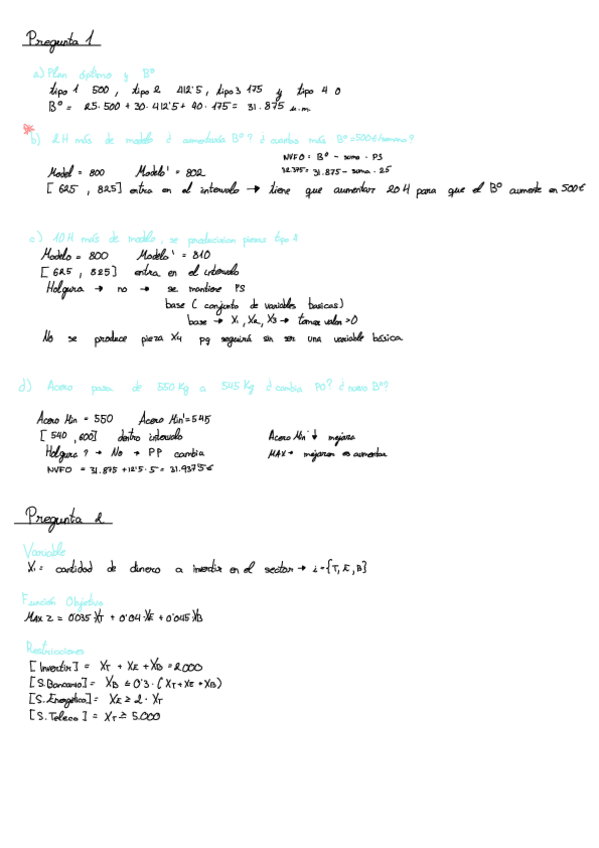 Pregunta 1
a) Plan óptimo y Bº
tipo 1 500, tipo 2 412'5, tipo 3 175 y tipo 4 0
Bº = 25·500 + 30·412'5 + 40·175 = 31.875 u.m.
b) 2H más de modelo ¿ aumentaría Bº? ¿ cuantas más Bº=500€/semana?
NVFO = Bº - suma · PS
Model = 800 Modelo' = 802
32.375 = 31.875 - suma · 25
[625, 825] entra en el intervalo → tiene que aumentar 20H para que el Bº aumente en 500€
c) 10H más de modelo, se producirian piezas tipo 4
Modelo = 800 Modelo' = 810
[625, 825] entra en el intervalo
Holgura → no → se mantiene PS
base (conjunto de variables basicas)
base → X1, X2, X3 → toman valor >0
No se produce pieza X4 pq seguirá sin ser una variable básica
d) Acero pasa de 550 Kg a 545 Kg ¿ cambia PO? ¿ nuevo Bº?
Acero Min = 550 Acero Min'=545
[540, 600] dentro intervalo Acero Min ↓ mejora
Holgura? → No → PP cambia MAX → mejorar es aumentar
NVFO = 31.875 + 12'5 · 5 = 31.937'5€
Pregunta 2
Variable
Xi = cantidad de dinero a invertir en el sector → i={T, E, B}
Función Objetivo
MAX Z = 0'035·XT + 0'04·XE + 0'045·XB
Restricciones
[Invertir] = XT + XE + XB = 2000
[S.Bancario] = XB ≤ 0'3·(XT+XE+XB)
[S.Energético] = XE ≥ 2·XT
[S.Teleco] = XT ≥ 5.000